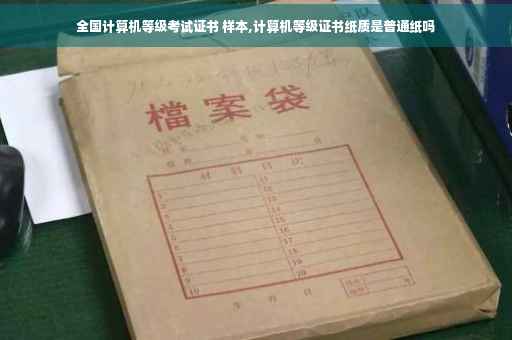 全国计算机等级考试证书 样本,计算机等级证书纸质是普通纸吗
檔案袋
材料目次
1 11
2 12
3 13
4 14
5 15
6 16
7 17
8 18
9 19
10 20
年 月 日